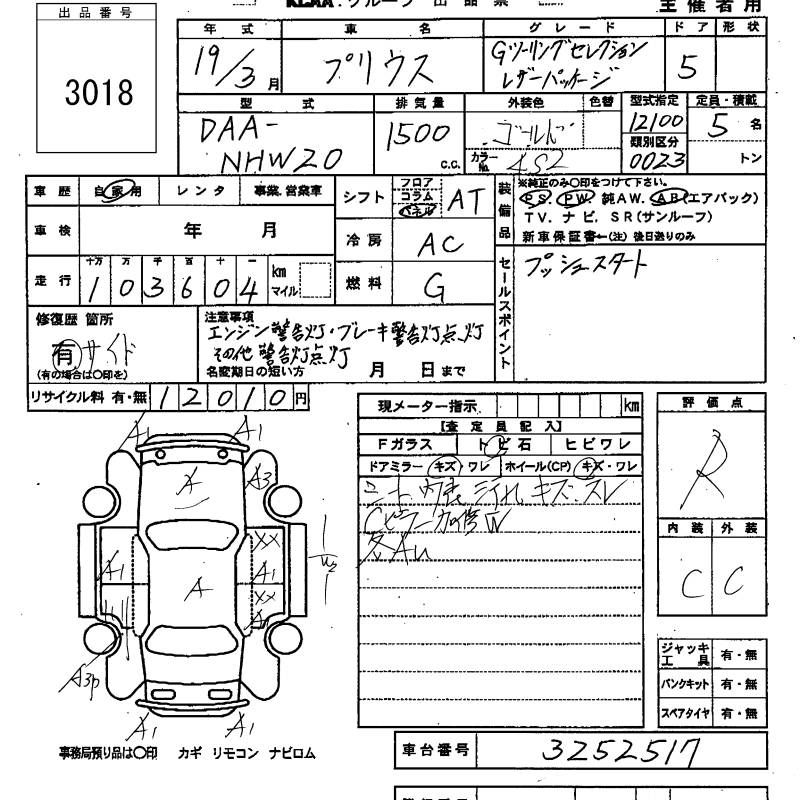 KCAA・グループ 出品票
主催者用
出品番号
3018
年式 車名 グレード ドア 形状
19/3月 プリウス Gツーリングセレクション レザーパッケージ 5
型式 排気量 外装色 色替 型式指定 定員・積載
DAA-NHW20 1500 c.c. ゴールド 12100 5名
カラーNo. 4S2 類別区分 0023 トン
車歴 自家用 レンタ 事業.営業車
シフト フロア コラム パネル AT
装備品 ※純正のみ〇印をつけて下さい。
PS. PW. 純AW. AB(エアバック)
TV. ナビ. SR(サンルーフ)
新車保証書←(注)後日送りのみ
車検 年 月
冷房 AC
走行 十万 万 千 百 十 一 km マイル
103604
燃料 G
セールスポイント プッシュスタート
修復歴 箇所
有 サイド
(有の場合は〇印を)
注意事項
エンジン警告灯・ブレーキ警告灯点灯
その他警告灯点灯
名変期日の短い方 月 日まで
リサイクル料 有・無 12010円
現メーター指示 km
【査定員記入】
Fガラス トビ石 ヒビワレ
ドアミラー キズ・ワレ ホイール(CP) キズ・ワレ
キズ・スレ
評価点
R
内装 外装
C C
A1 A1
A A3
XX
A1 A1
A XX
A3P
A1 A1
ジャッキ工具 有・無
パンクキット 有・無
スペアタイヤ 有・無
事務局預り品は〇印 カギ リモコン ナビロム
車台番号 3252517